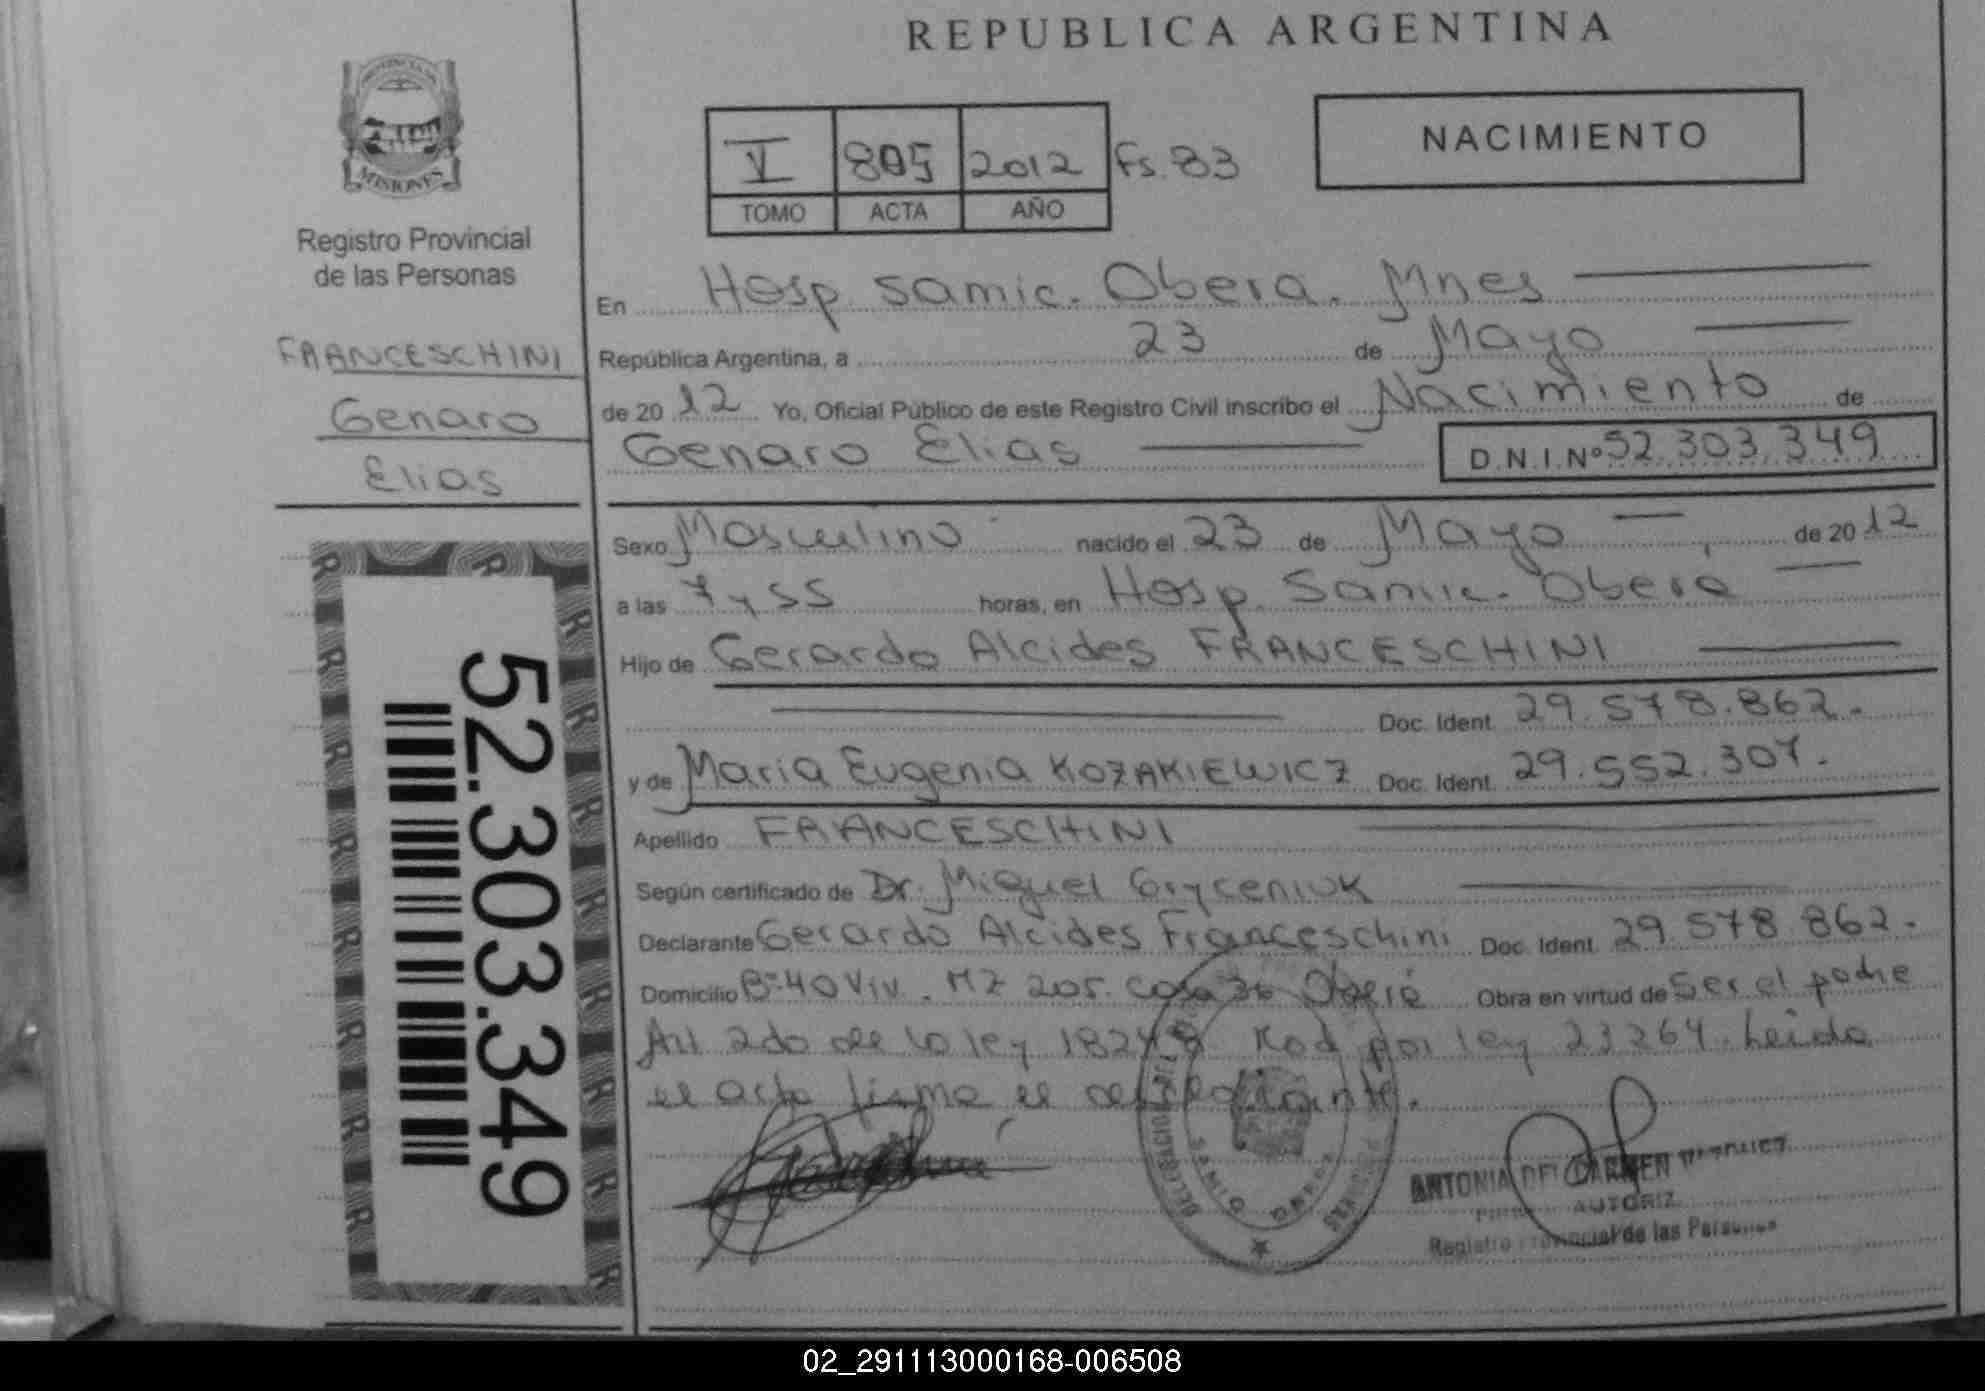 REPUBLICA ARGENTINA
PROVINCIA DE
MISIONES
Registro Provincial
de las Personas
FRANCESCHINI
Genaro
Elias
52.303.349
V 805 2012 Fs. 83
TOMO ACTA AÑO
NACIMIENTO
En Hosp. Samic. Obera. Mnes
República Argentina, a 23 de Mayo
de 2012 Yo, Oficial Público de este Registro Civil inscribo el Nacimiento de
Genaro Elias D.N.I.Nº 52.303.349
Sexo Masculino nacido el 23 de Mayo de 2012
a las 7 y 55 horas, en Hosp. Samic. Obera
Hijo de Gerardo Alcides FRANCESCHINI
Doc. Ident. 29.578.862.
y de Maria Eugenia KOZAKIEWICZ Doc. Ident. 29.552.307.
Apellido FRANCESCHINI
Según certificado de Dr. Miguel Gryceniuk
Declarante Gerardo Alcides Franceschini Doc. Ident. 29.578.862.
Domicilio Bº 40 Viv. MZ 205. Casa 36 Oberá Obra en virtud de Ser el padre
Art 2do de la ley 18248 Mod por ley 23264. Leida
el acta firma el declarante.
ANTONIA DEL CARMEN
AUTORIZ
Registro Provincial de las Personas
02_291113000168-006508